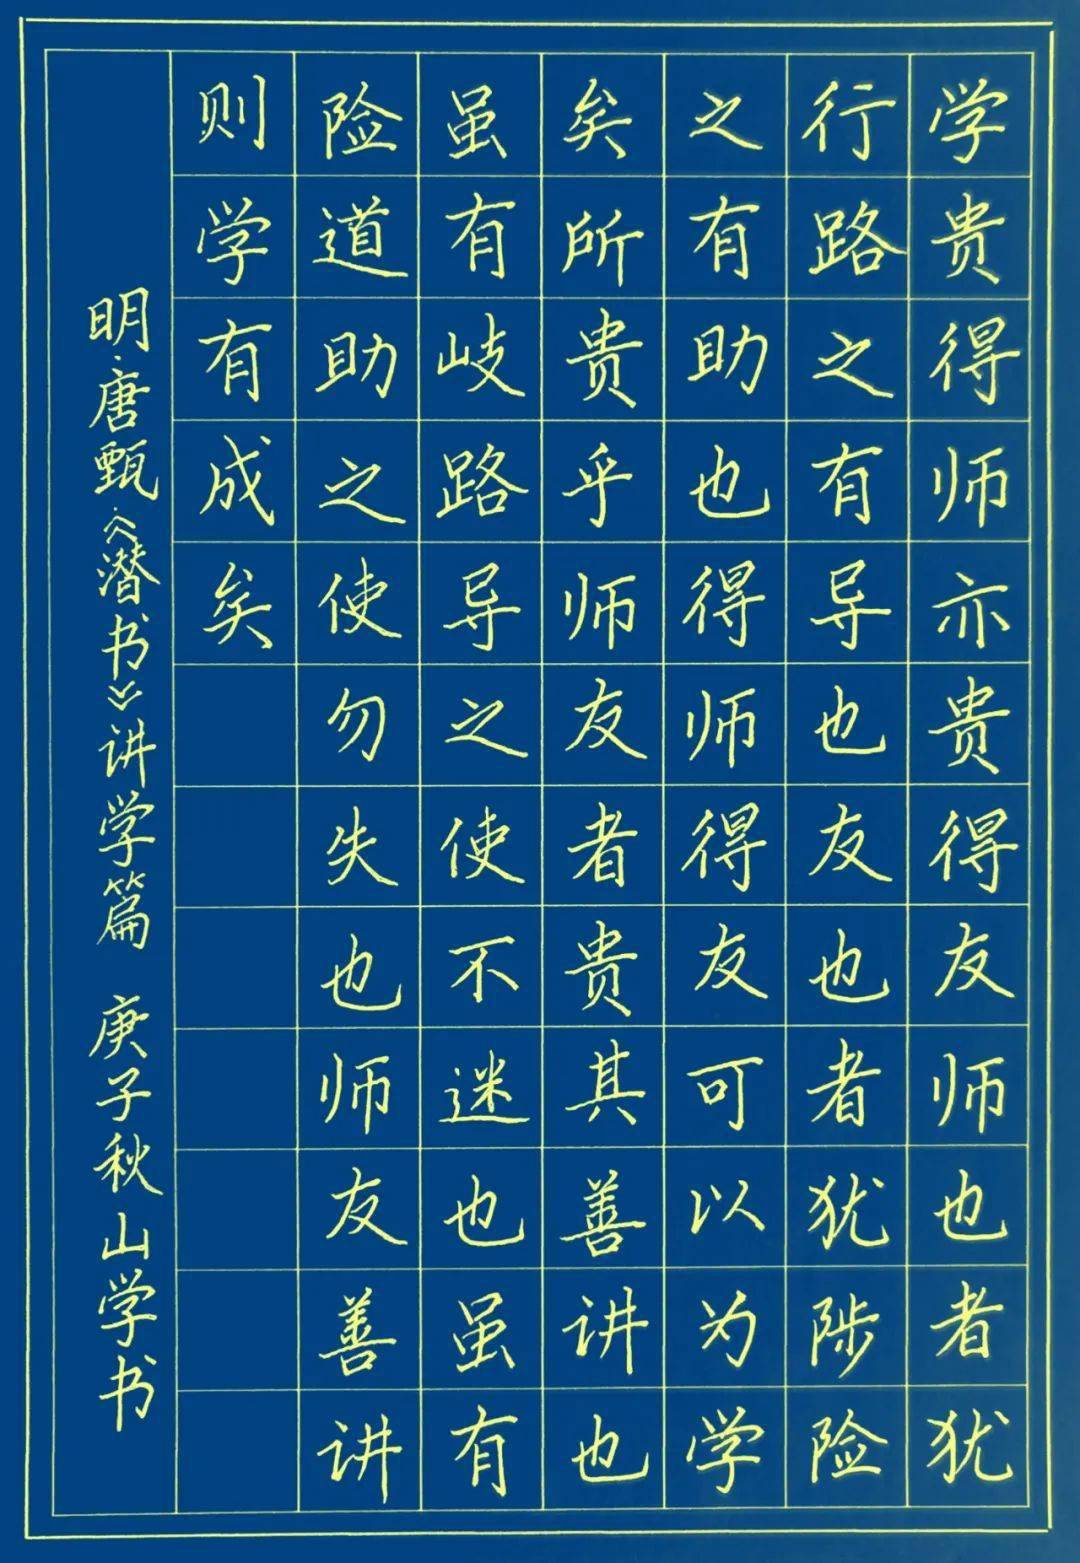 学贵得师亦贵得友师也者犹
行路之有导也友也者犹陟险
之有助也得师得友可以为学
矣所贵乎师友者贵其善讲也
虽有岐路导之使不迷也虽有
险道助之使勿失也师友善讲
则学有成矣
明·唐甄《潜书》讲学篇 庚子秋山学书